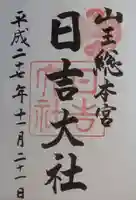 山王総本宮
日吉大社
平成二七年十一月二十一日